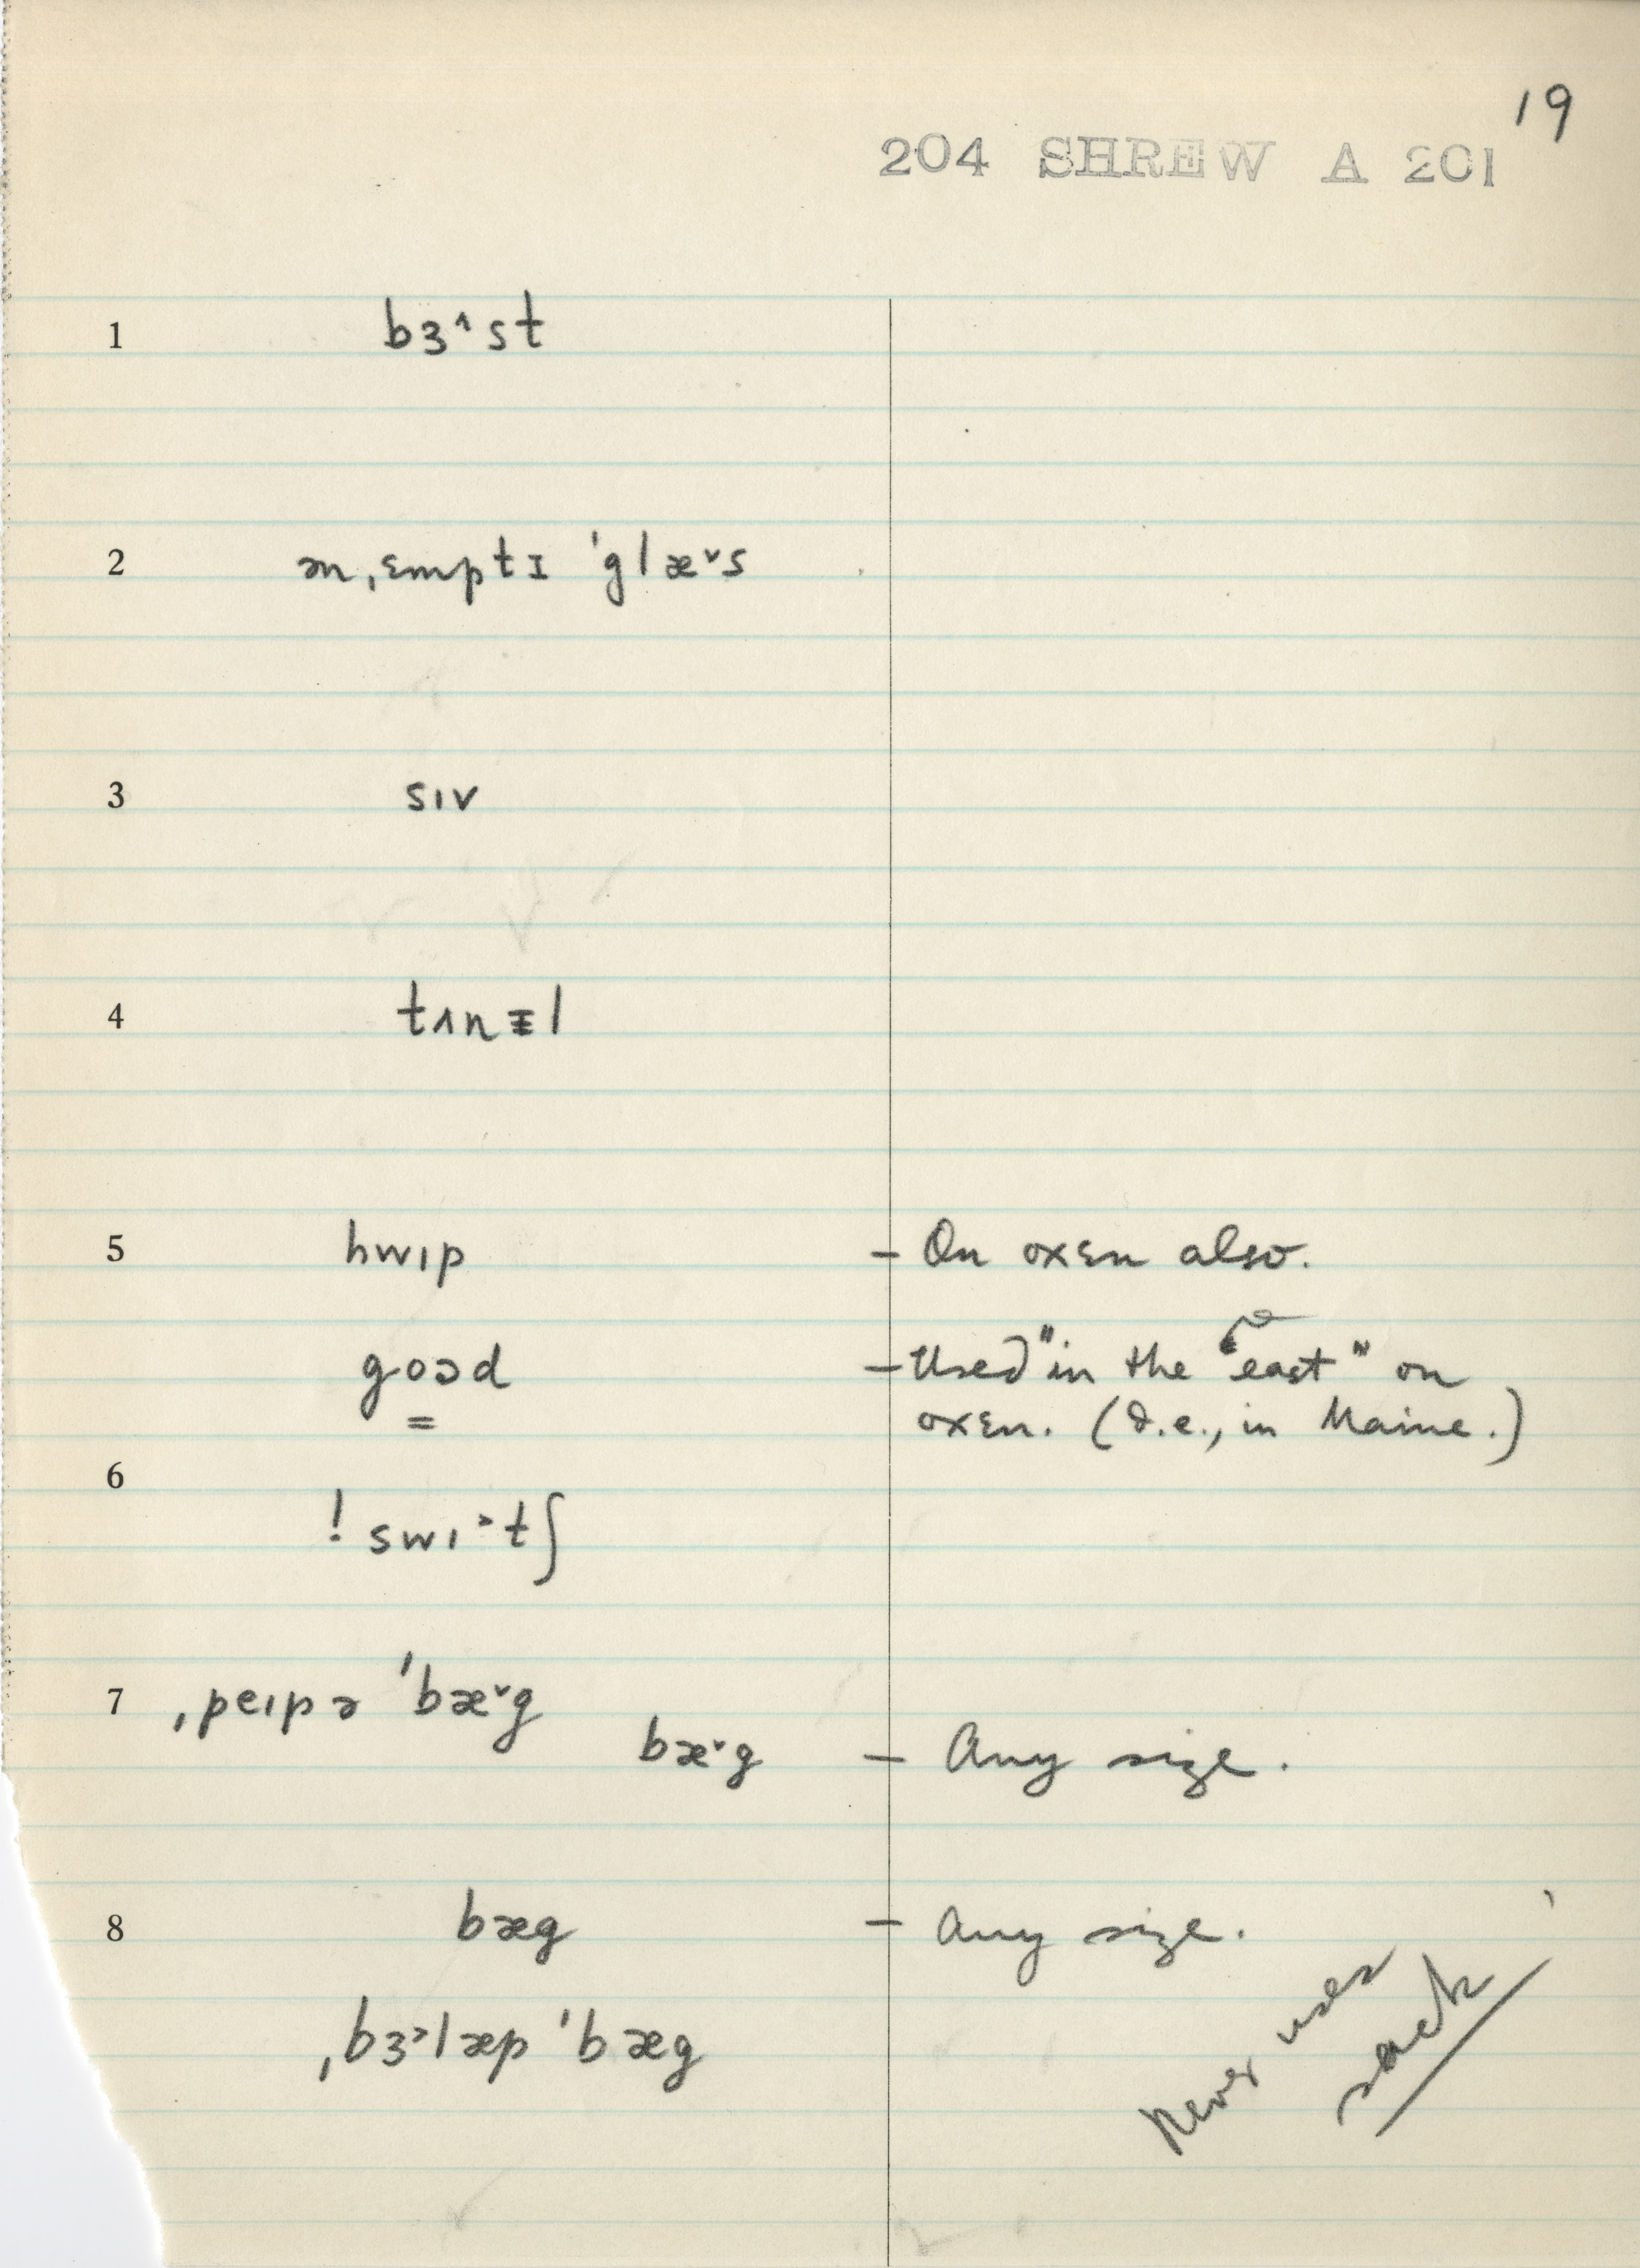 19
204 SHREW A 201
1 bɜ˄st
2 ən ˌɛmptɪ ˈglæ˅s
3 sɪv
4 tʌnᵻl
5 hwɪp – On oxen also.
goəd – Used "in the east" on
oxen. (I.e., in Maine.)
6
! swɪ˃tʃ
7 ˌpeɪpə ˈbæ˅g
bæ˅g – Any size.
8 bæg – Any size.
ˌbɜ˃læp ˈbæg
Never uses
sack